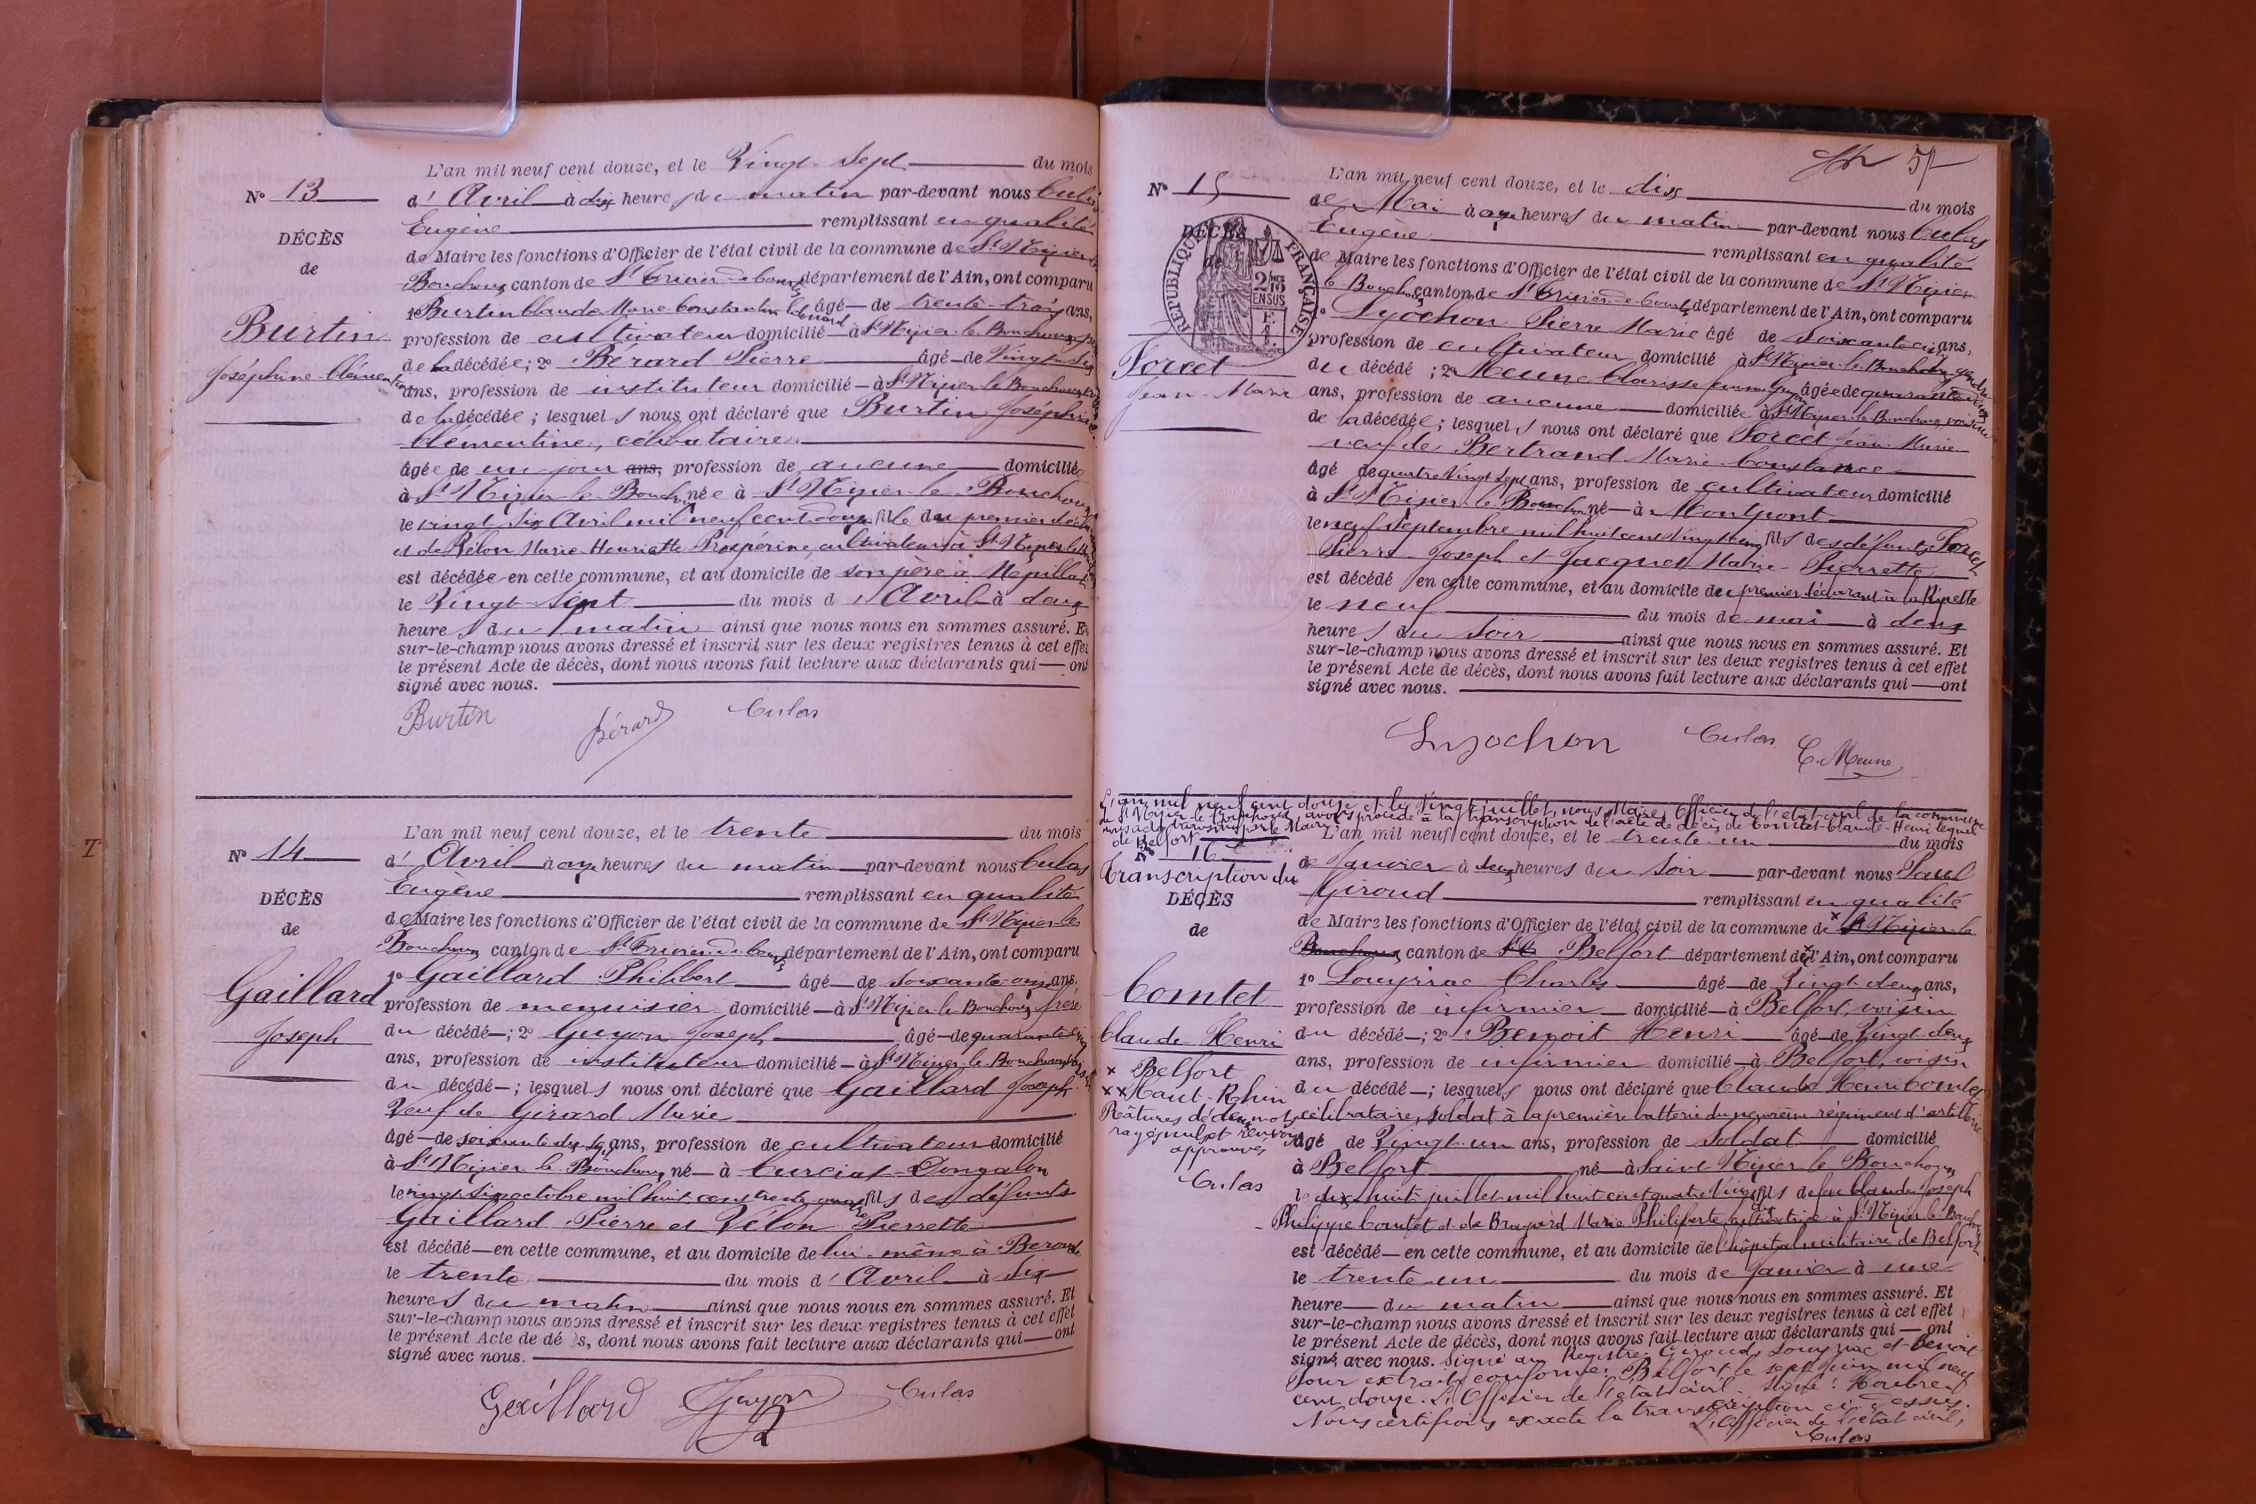 L'an mil neuf cent douze, et le Vingt-Sept du mois
N° 13
d'Avril à dix heures du matin par-devant nous Culas
Eugène remplissant en qualité
DÉCÈS
de Maire les fonctions d'Officier de l'état civil de la commune de St Nizier le
de
Bouchoux canton de St Trivier-de-Courtes département de l'Ain, ont comparu
1° Burtin Claude Marie Constantin Edouard âgé de trente-trois ans,
Burtin
Joséphine Clémentine
profession de cultivateur domicilié à St Nizier le Bouchoux père
de la décédée; 2° Bérard Pierre âgé de Vingt-six
ans, profession de instituteur domicilié à St Nizier le Bouchoux
de la décédée; lesquels nous ont déclaré que Burtin Joséphine
Clémentine, célibataire
âgée de un jour ans, profession de aucune domiciliée
à St Nizier le Bouch. née à St Nizier le Bouchoux
le vingt six Avril mil neuf cent douze fille du premier déclarant
et de Rélon Marie Henriette Prospérine, cultivateurs à St Nizier le
est décédée en cette commune, et au domicile de son père à Mépillat
le Vingt-Sept du mois d'Avril à deux
heures du matin ainsi que nous nous en sommes assuré. Et
sur-le-champ nous avons dressé et inscrit sur les deux registres tenus à cet effet
le présent Acte de décès, dont nous avons fait lecture aux déclarants qui ont
signé avec nous.
Burtin Bérard Culas
L'an mil neuf cent douze, et le trente du mois
N° 14
d'Avril à onze heures du matin par-devant nous Culas
Eugène remplissant en qualité
DÉCÈS
de Maire les fonctions d'Officier de l'état civil de la commune de St Nizier le
de
Bouchoux canton de St Trivier-de-Courtes département de l'Ain, ont comparu
1° Gaillard Philibert âgé de soixante onze ans,
Gaillard
Joseph
profession de menuisier domicilié à St Nizier le Bouchoux frère
du décédé; 2° Guyon Joseph âgé de quarante cinq
ans, profession de instituteur domicilié à St Nizier le Bouchoux voisin
du décédé; lesquels nous ont déclaré que Gaillard Joseph
Veuf de Girard Marie
âgé de soixante dix sept ans, profession de cultivateur domicilié
à St Nizier le Bouchoux né à Curciat-Dongalon
le vingt six octobre mil huit cent trente quatre fils des défunts
Gaillard Pierre et Vélon Pierrette
est décédé en cette commune, et au domicile de lui-même à
le trente du mois d'Avril à six
heures du matin ainsi que nous nous en sommes assuré. Et
sur-le-champ nous avons dressé et inscrit sur les deux registres tenus à cet effet
le présent Acte de décès, dont nous avons fait lecture aux déclarants qui ont
signé avec nous.
Gaillard Guyon Culas
T
57
L'an mil neuf cent douze, et le dix du mois
N° 15
de Mai à onze heures du matin par-devant nous Culas
Eugène remplissant en qualité
DÉCÈS
de
RÉPUBLIQUE FRANÇAISE
2 DES EN SUS
de Maire les fonctions d'Officier de l'état civil de la commune de St Nizier
le Bouchoux canton de St Trivier-de-Courtes département de l'Ain, ont comparu
1° Lyochon Pierre Marie âgé de soixante cinq ans,
Forcet
Jean-Marie
profession de cultivateur domicilié à St Nizier le Bouchoux gendre
du décédé; 2° Meune Clarisse femme Guyon âgée de quarante
ans, profession de aucune domiciliée à St Nizier le Bouchoux, voisine
de la décédée; lesquels nous ont déclaré que Forcet Jean Marie
veuf de Bertrand Marie Constance
âgé de quatre vingt sept ans, profession de cultivateur domicilié
à St Nizier le Bouchoux né à Montpont
le neuf septembre mil huit cent vingt fils des défunts Forcet
Pierre Joseph et Jacquet Marie-Pierrette
est décédé en cette commune, et au domicile du premier déclarant à la Ripette
le neuf du mois de mai à deux
heures du soir ainsi que nous nous en sommes assuré. Et
sur-le-champ nous avons dressé et inscrit sur les deux registres tenus à cet effet
le présent Acte de décès, dont nous avons fait lecture aux déclarants qui ont
signé avec nous.
Lyochon Culas C. Meune
L'an mil neuf cent douze et le vingt juillet, nous Maire, Officier de l'état civil de la commune
de St Nizier-le-Bouchoux, avons procédé à la transcription de l'acte de décès de Comtet-Claude-Henri lequel
nous a été transmis par le Maire
de Belfort
L'an mil neuf cent douze, et le trente un du mois
N° 16
de Janvier à deux heures du soir par-devant nous Paul
Transcription du
Giroud remplissant en qualité
DÉCÈS
de Maire les fonctions d'Officier de l'état civil de la commune de x St Nizier le
de
Bouchoux canton de St Belfort département de xx l'Ain, ont comparu
1° Louyriac Charles âgé de Vingt deux ans,
Comtet
Claude Henri
profession de infirmier domicilié à Belfort, voisin
du décédé; 2° Benoit Henri âgé de Vingt-deux
ans, profession de infirmier domicilié à Belfort, voisin
x Belfort
xx Haut-Rhin
Ratures de deux mots
rayés nuls et renvois
approuvés
Culas
du décédé; lesquels nous ont déclaré que Claude Henri Comtet
célibataire, soldat à la première batterie du neuvième régiment d'artillerie
âgé de Vingt-un ans, profession de soldat domicilié
à Belfort né à Saint Nizier le Bouchoux
le dix huit juillet mil huit cent quatre vingt dix fils de feu Claude Joseph
Philippe Comtet et de Brayard Marie Philiberte, cultivatrice à St Nizier le Bouchoux
est décédé en cette commune, et au domicile de l'hôpital militaire de Belfort
le trente un du mois de janvier à une
heure du matin ainsi que nous nous en sommes assuré. Et
sur-le-champ nous avons dressé et inscrit sur les deux registres tenus à cet effet
le présent Acte de décès, dont nous avons fait lecture aux déclarants qui ont
signé avec nous. Signé au Registre: Giroud, Louyriac et Benoit.
Pour extrait conforme: Belfort, le sept juin mil neuf
cent douze. L'Officier de l'état civil. Signé: Houbre
Nous certifions exacte la transcription ci-dessus.
L'Officier de l'état civil,
Culas